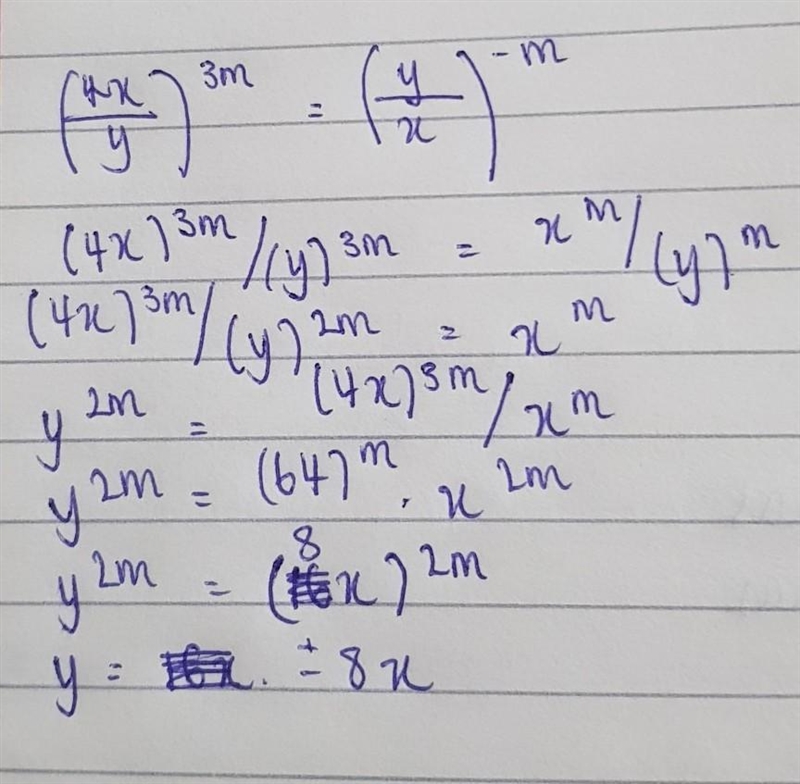 (4x/y)^3m = (y/x)^-m
(4x)^3m/(y)^3m = x^m/(y)^m
(4x)^3m/(y)^2m = x^m
y^2m = (4x)^3m/x^m
y^2m = (64)^m . x^2m
y^2m = (8x)^2m
y = ± 8x